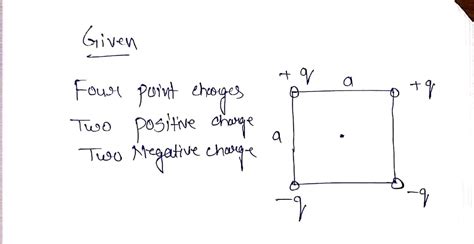 Given
Four point charges
Two positive charge
Two Negative charge
+q a +q
a
-q -q